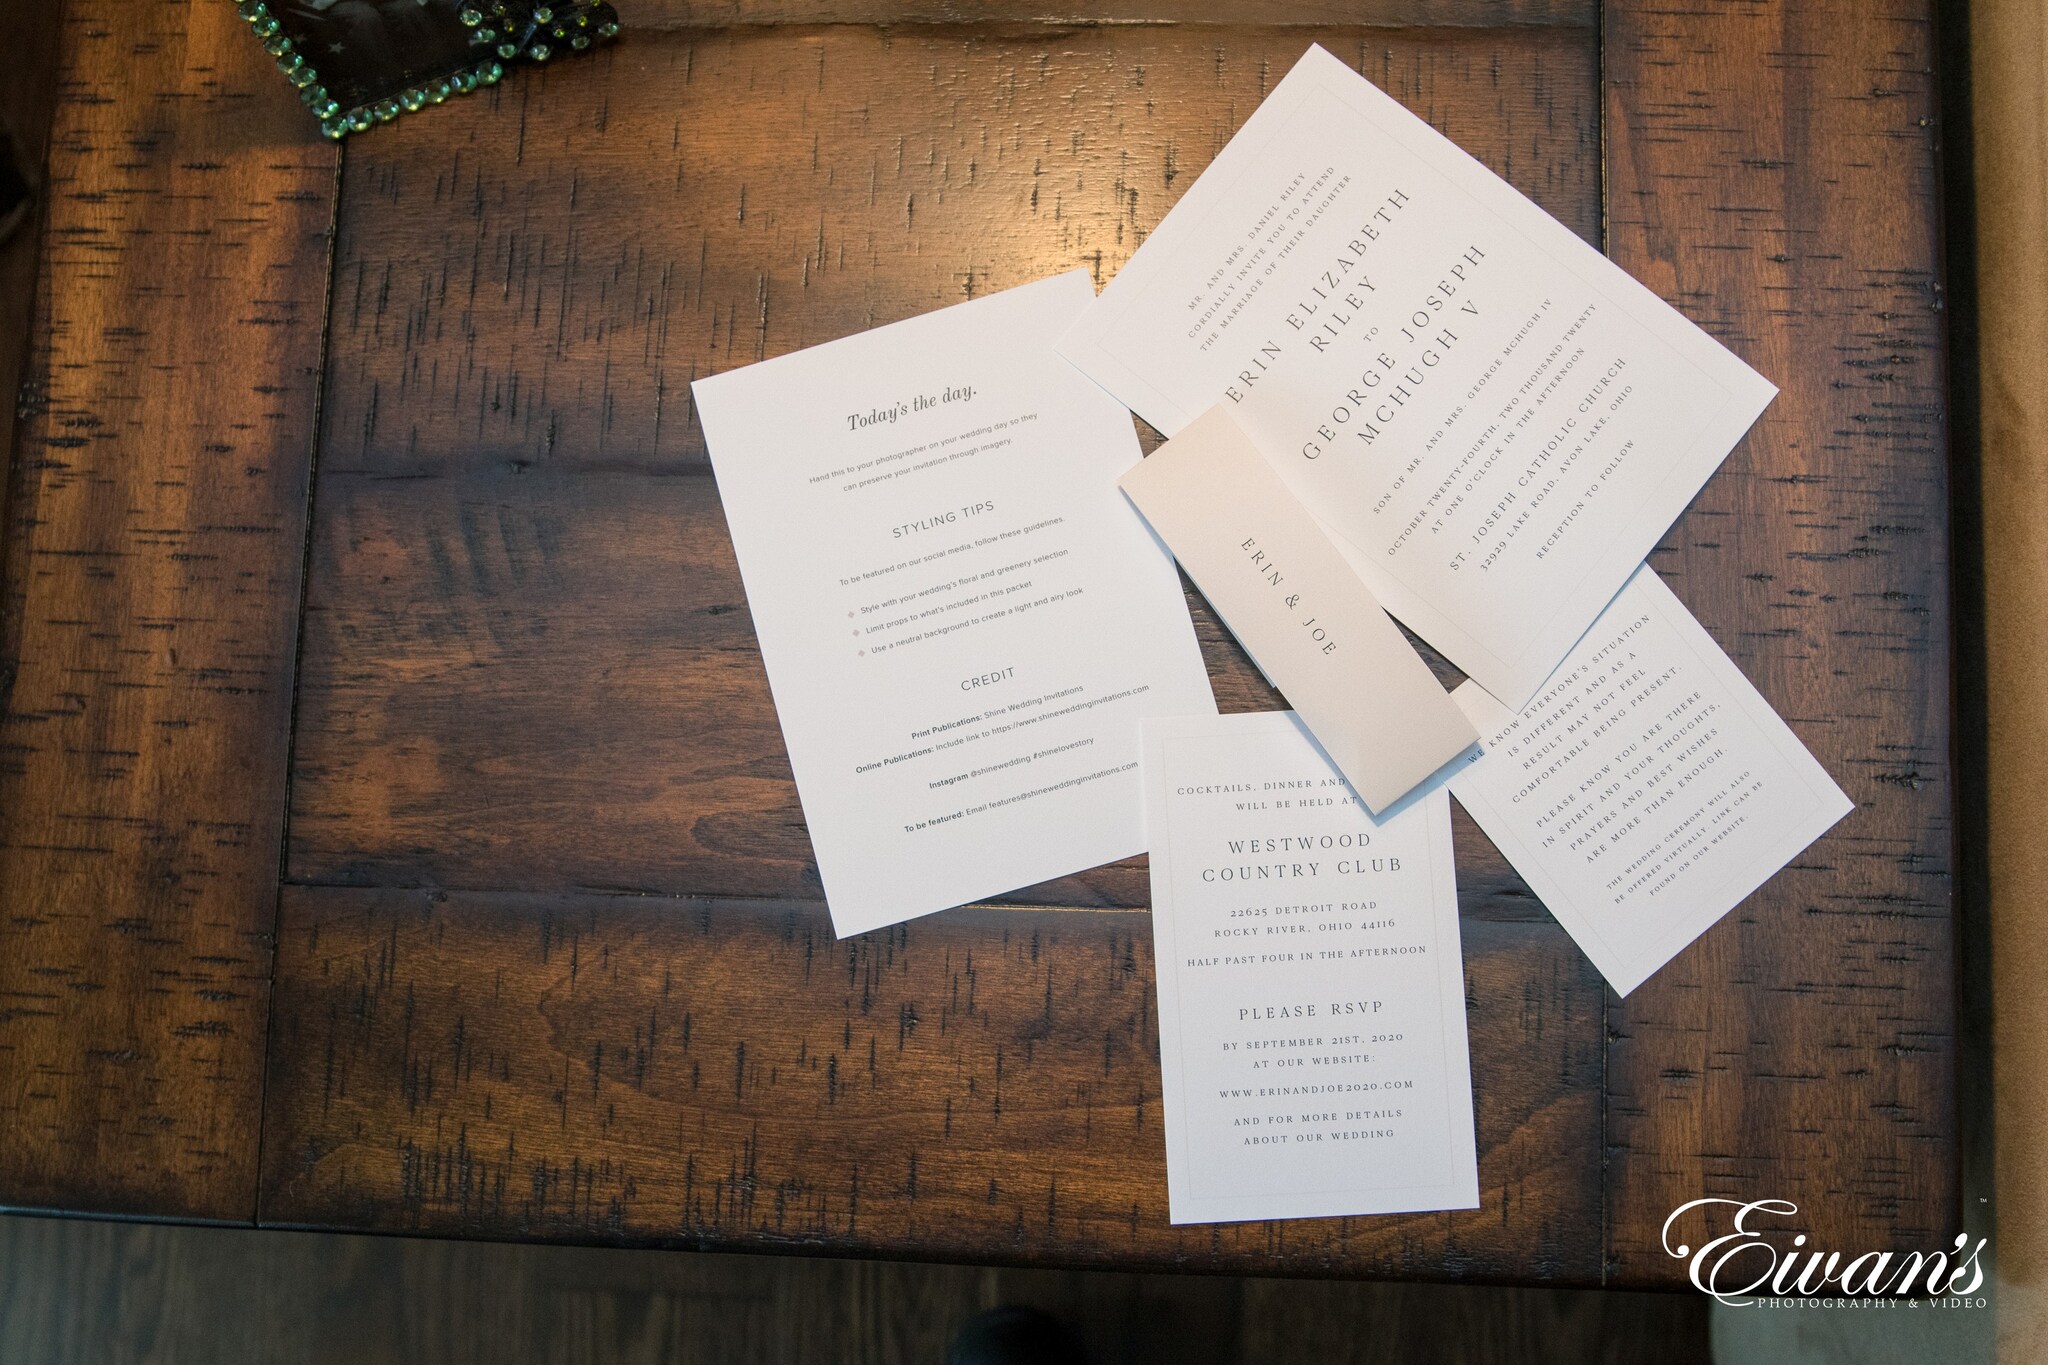 Today's the day.
Hand this to your photographer on your wedding day so they
can preserve your invitation through imagery.
STYLING TIPS
To be featured on our social media, follow these guidelines.
Style with your wedding's floral and greenery selection
Limit props to what's included in this packet
Use a neutral background to create a light and airy look
CREDIT
Print Publications: Shine Wedding Invitations
Online Publications: Include link to https://www.shineweddinginvitations.com
Instagram @shinewedding #shinelovestory
To be featured: Email features@shineweddinginvitations.com
MR. AND MRS. DANIEL RILEY
CORDIALLY INVITE YOU TO ATTEND
THE MARRIAGE OF THEIR DAUGHTER
ERIN ELIZABETH
RILEY
TO
GEORGE JOSEPH
MCHUGH V
SON OF MR. AND MRS. GEORGE MCHUGH IV
OCTOBER TWENTY-FOURTH, TWO THOUSAND TWENTY
AT ONE O'CLOCK IN THE AFTERNOON
ST. JOSEPH CATHOLIC CHURCH
32929 LAKE ROAD, AVON LAKE, OHIO
RECEPTION TO FOLLOW
ERIN & JOE
COCKTAILS, DINNER AND
WILL BE HELD AT
WESTWOOD
COUNTRY CLUB
22625 DETROIT ROAD
ROCKY RIVER, OHIO 44116
HALF PAST FOUR IN THE AFTERNOON
PLEASE RSVP
BY SEPTEMBER 21ST, 2020
AT OUR WEBSITE:
WWW.ERINANDJOE2020.COM
AND FOR MORE DETAILS
ABOUT OUR WEDDING
WE KNOW EVERYONE'S SITUATION
IS DIFFERENT AND AS A
RESULT MAY NOT FEEL
COMFORTABLE BEING PRESENT.
PLEASE KNOW YOU ARE THERE
IN SPIRIT AND YOUR THOUGHTS,
PRAYERS AND BEST WISHES
ARE MORE THAN ENOUGH.
THE WEDDING CEREMONY WILL ALSO
BE OFFERED VIRTUALLY. LINK CAN BE
FOUND ON OUR WEBSITE.
Eivan's ™
PHOTOGRAPHY & VIDEO